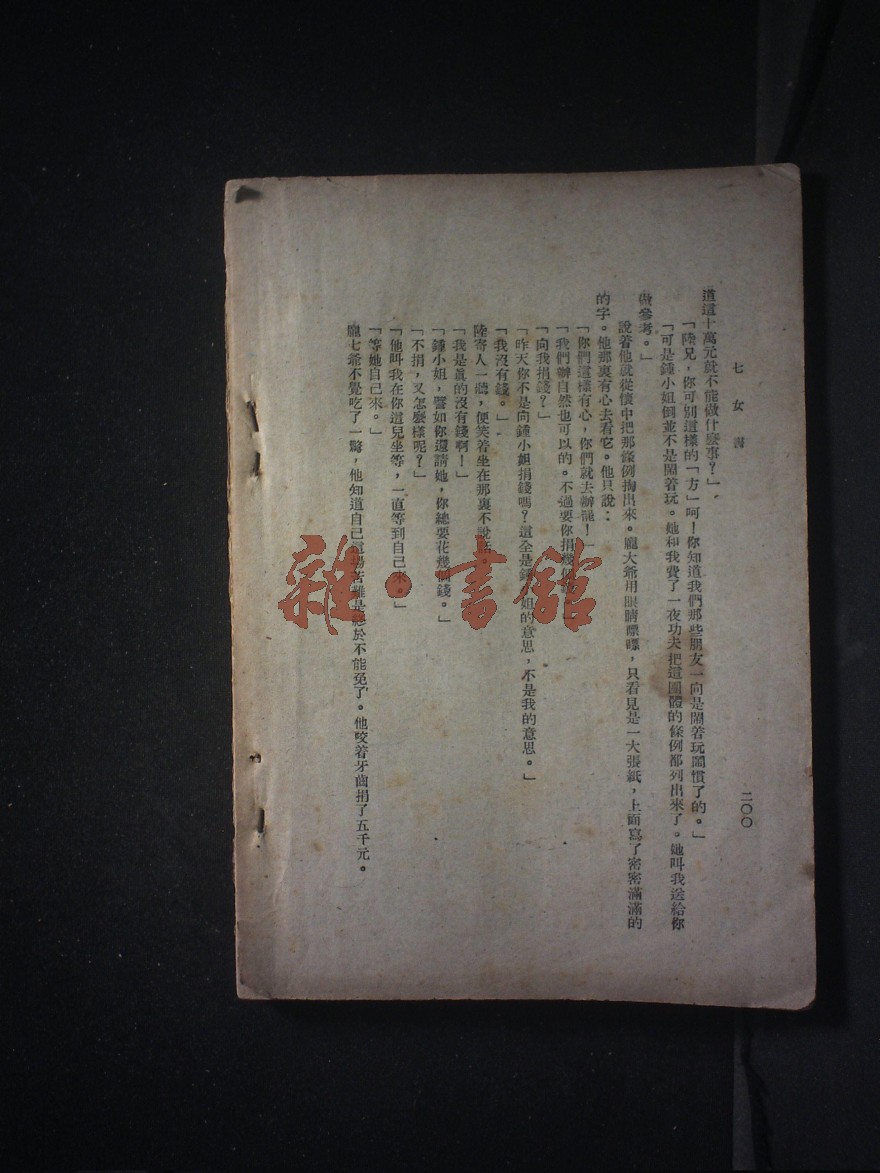 七女書
二〇〇
道這十萬元就不能做什麼事?」
「陸兄,你可別這樣的「方」呵!你知道我們那些朋友一向是鬧着玩鬧慣了的。」
「可是鍾小姐倒並不是鬧着玩。她和我費了一夜功夫把這團體的條例都列出來了。她叫我送給你
做參考。」
說着他就從懷中把那條例掏出來。龐大爺用眼睛瞟瞟,只看見是一大張紙,上面寫了密密滿滿的
的字。他那裏有心去看它。他只說:
「你們這樣有心,你們就去辦罷!」
「我們辦自然也可以的。不過要你捐幾個
「向我捐錢?」
「昨天你不是向鍾小姐捐錢嗎?這全是鍾小姐的意思,不是我的意思。」
「我沒有錢。」
陸寄人一聽,便笑着坐在那裏不說話。
「我是眞的沒有錢啊!」
「鍾小姐,譬如你還請她,你總要花幾個錢。」
「不捐,又怎麼樣呢?」
「他叫我在你這兒坐等,一直等到自己來。」
「等她自己來。」
龐七爺不覺吃了一驚,他知道自己這場苦難是終於不能免了。他咬着牙齒捐了五千元。
雜·書館